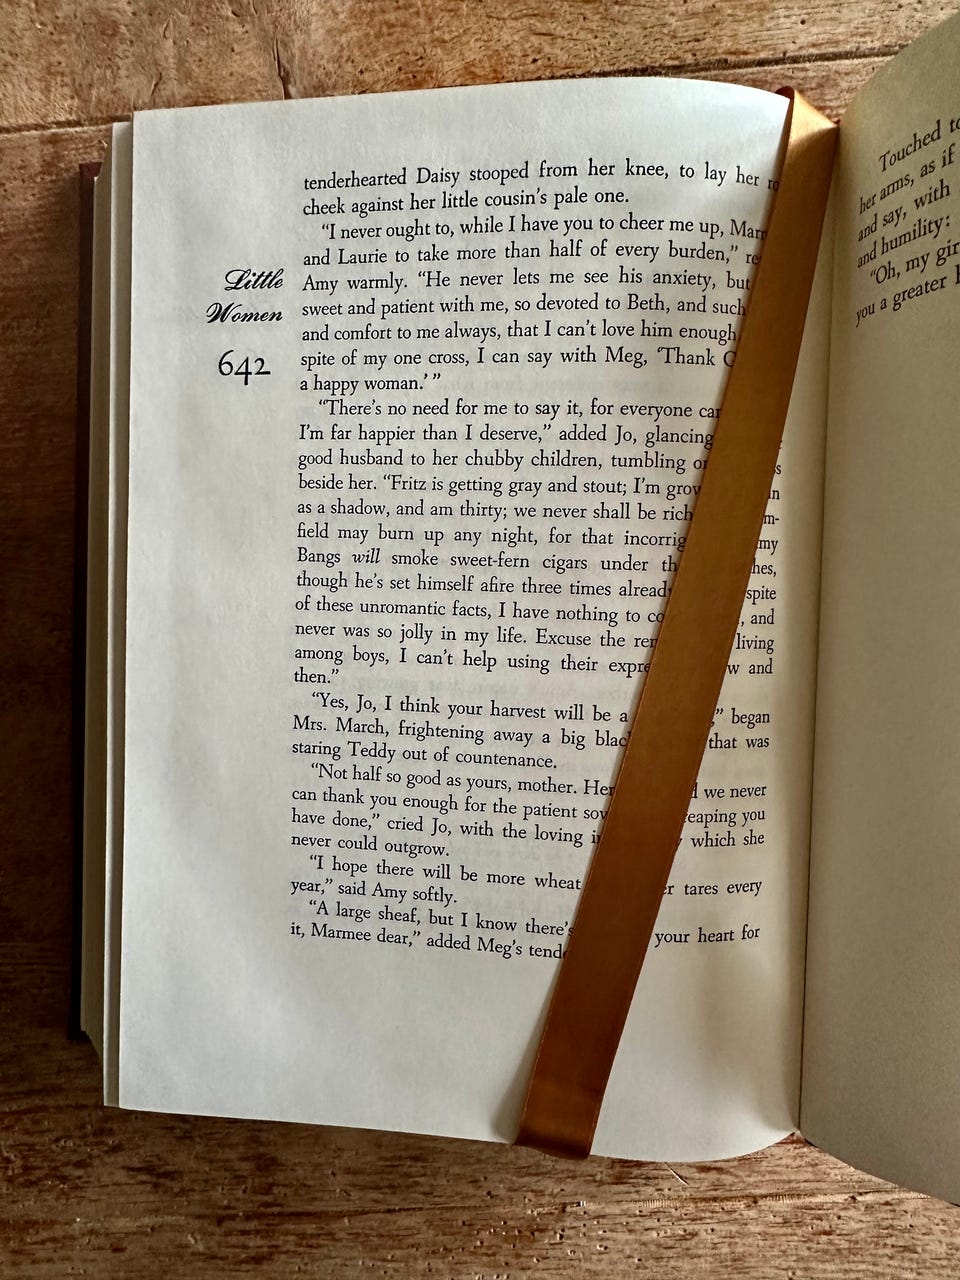 Little
Women
642
tenderhearted Daisy stooped from her knee, to lay her
cheek against her little cousin's pale one.
“I never ought to, while I have you to cheer me up,
and Laurie to take more than half of every burden,”
Amy warmly. “He never lets me see his anxiety, but
sweet and patient with me, so devoted to Beth, and such
and comfort to me always, that I can't love him enough
spite of my one cross, I can say with Meg, ‘Thank
a happy woman.’ ”
“There's no need for me to say it, for everyone
I'm far happier than I deserve,” added Jo, glancing
good husband to her chubby children, tumbling
beside her. “Fritz is getting gray and stout; I'm
as a shadow, and am thirty; we never shall be rich
field may burn up any night, for that my
Bangs will smoke sweet-fern cigars under
though he's set himself afire three times spite
of these unromantic facts, I have nothing to , and
never was so jolly in my life. Excuse the living
among boys, I can't help using their and
then.”
“Yes, Jo, I think your harvest will be a ” began
Mrs. March, frightening away a big that was
staring Teddy out of countenance.
“Not half so good as yours, mother. we never
can thank you enough for the patient reaping you
have done,” cried Jo, with the loving which she
never could outgrow.
“I hope there will be more wheat tares every
year,” said Amy softly.
“A large sheaf, but I know there's your heart for
it, Marmee dear,” added Meg's
Touched
her arms, as if
and say, with
and humility:
“Oh, my
you a greater